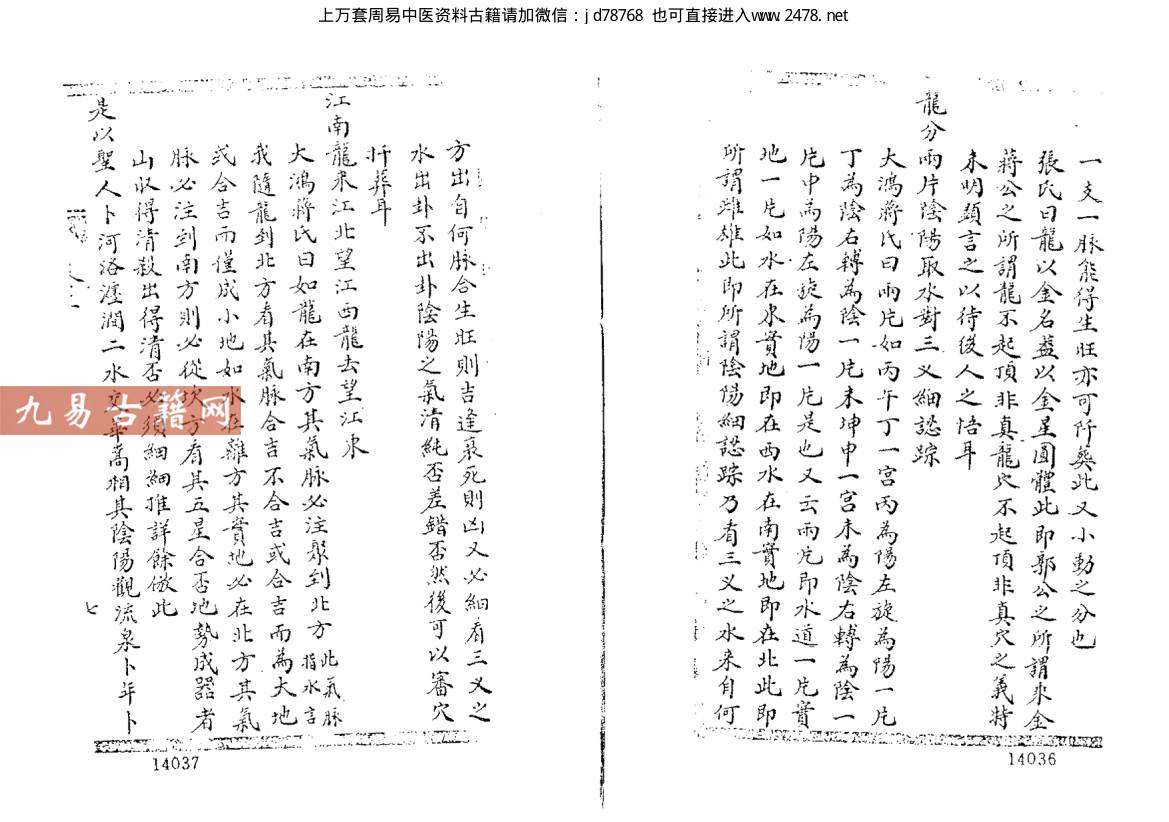 上万套周易中医资料古籍请加微信：jd78768 也可直接进入www.2478.net
一支一脉能得生旺亦可阡葬此又小動之分也
張氏曰龍以金名葢以金星圓體此即郭公之所謂来金
蔣公之所謂龍不起頂非真龍穴不起頂非真穴之義特
未明顯言之以待後人之悟耳
龍分兩片陰陽取水對三义細認踪
大鴻蔣氏曰兩片如丙午丁一宮丙為陽左旋為陽一片
丁為陰右轉為陰一片未坤申一宮未為陰右轉為陰一
片申為陽左旋為陽一片是也又云兩片即水道一片實
地一片如水在東實地即在西水在南實地即在北此即
所謂雌雄此即所謂陰陽細認踪乃看三义之水来自何
14036
方出自何脉合生旺則吉逢衰死則凶又必細看三义之
水出卦不出卦陰陽之氣清純否差錯否然後可以審穴
扦葬耳
江南龍来江北望江西龍去望江東
大鴻蔣氏曰如龍在南方其氣脉必注聚到北方此氣脉指水言
我隨龍到北方看其氣脉合吉不合吉或合吉而為大地
或合吉而僅成小地如水在離方其實地必在北方其氣
脉必注到南方則必從坎方看其五星合否地勢成器者
山收得清殺出得清否必須細細推詳餘倣此
是以聖人卜河洛瀍澗二水交華嵩相其陰陽觀流泉卜年卜
七
14037
九易古籍网